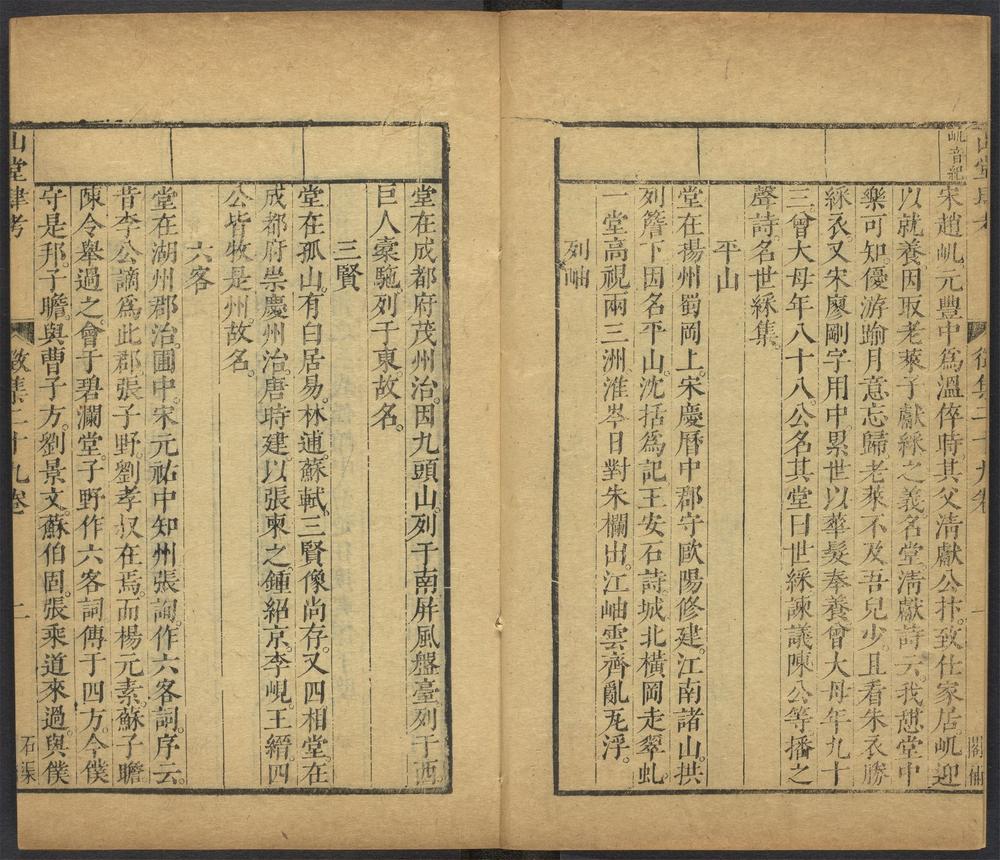 屼音紀
宋趙屼元豐中爲溫倅時其父淸獻公抃致仕家居屼迎
以就養因取老萊子獻綵之義名堂淸獻詩云我憇堂中
樂可知優游踰月意忘歸老萊不及吾兒少且看朱衣勝
綵衣又宋廖剛字用中累世以華髮奉養曾大母年九十
三曾大母年八十八公名其堂曰世綵諫議陳公等播之
聲詩名世綵集
平山
堂在揚州蜀岡上宋慶曆中郡守歐陽修建江南諸山拱
列簷下因名平山沈括爲記王安石詩城北橫岡走翠虬
一堂高視兩三洲淮岑日對朱欄出江岫雲齊亂瓦浮
列岫
堂在成都府茂州治因九頭山列于南屏風盤臺列于西
巨人槖駞列于東故名
三賢
堂在孤山有白居易林逋蘇軾三賢像尚存又四相堂在
成都府崇慶州治唐時建以張柬之鍾紹京李峴王縉四
公皆牧是州故名
六客
堂在湖州郡治圃中宋元祐中知州張詢作六客詞序云
昔李公謫爲此郡張子野劉孝叔在焉而楊元素蘇子瞻
陳令舉過之會于碧瀾堂子野作六客詞傳于四方今僕
守是邦子瞻與曹子方劉景文蘇伯固張乘道來過與僕
山堂肆考
徵集二十九卷
二